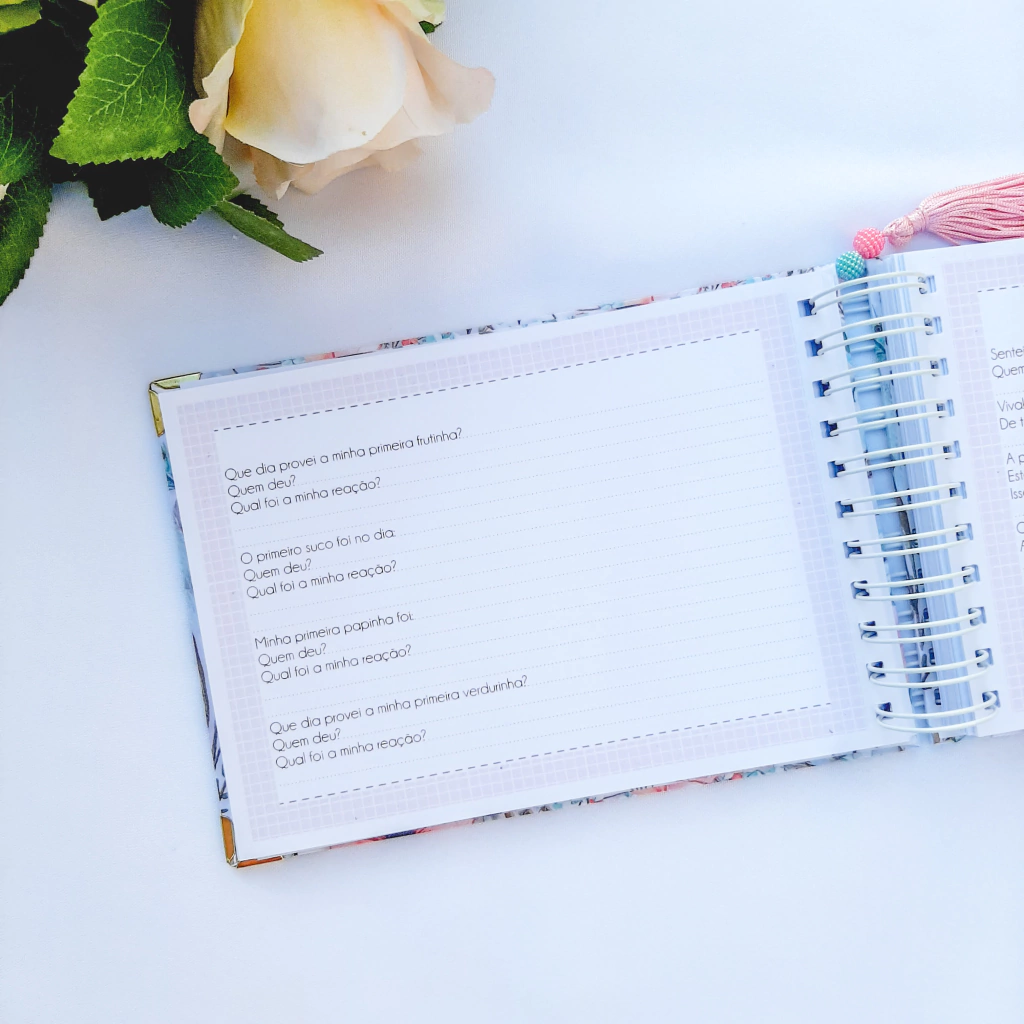 Que dia provei a minha primeira frutinha?
Quem deu?
Qual foi a minha reação?
O primeiro suco foi no dia:
Quem deu?
Qual foi a minha reação?
Minha primeira papinha foi:
Quem deu?
Qual foi a minha reação?
Que dia provei a minha primeira verdurinha?
Quem deu?
Qual foi a minha reação?
De
A